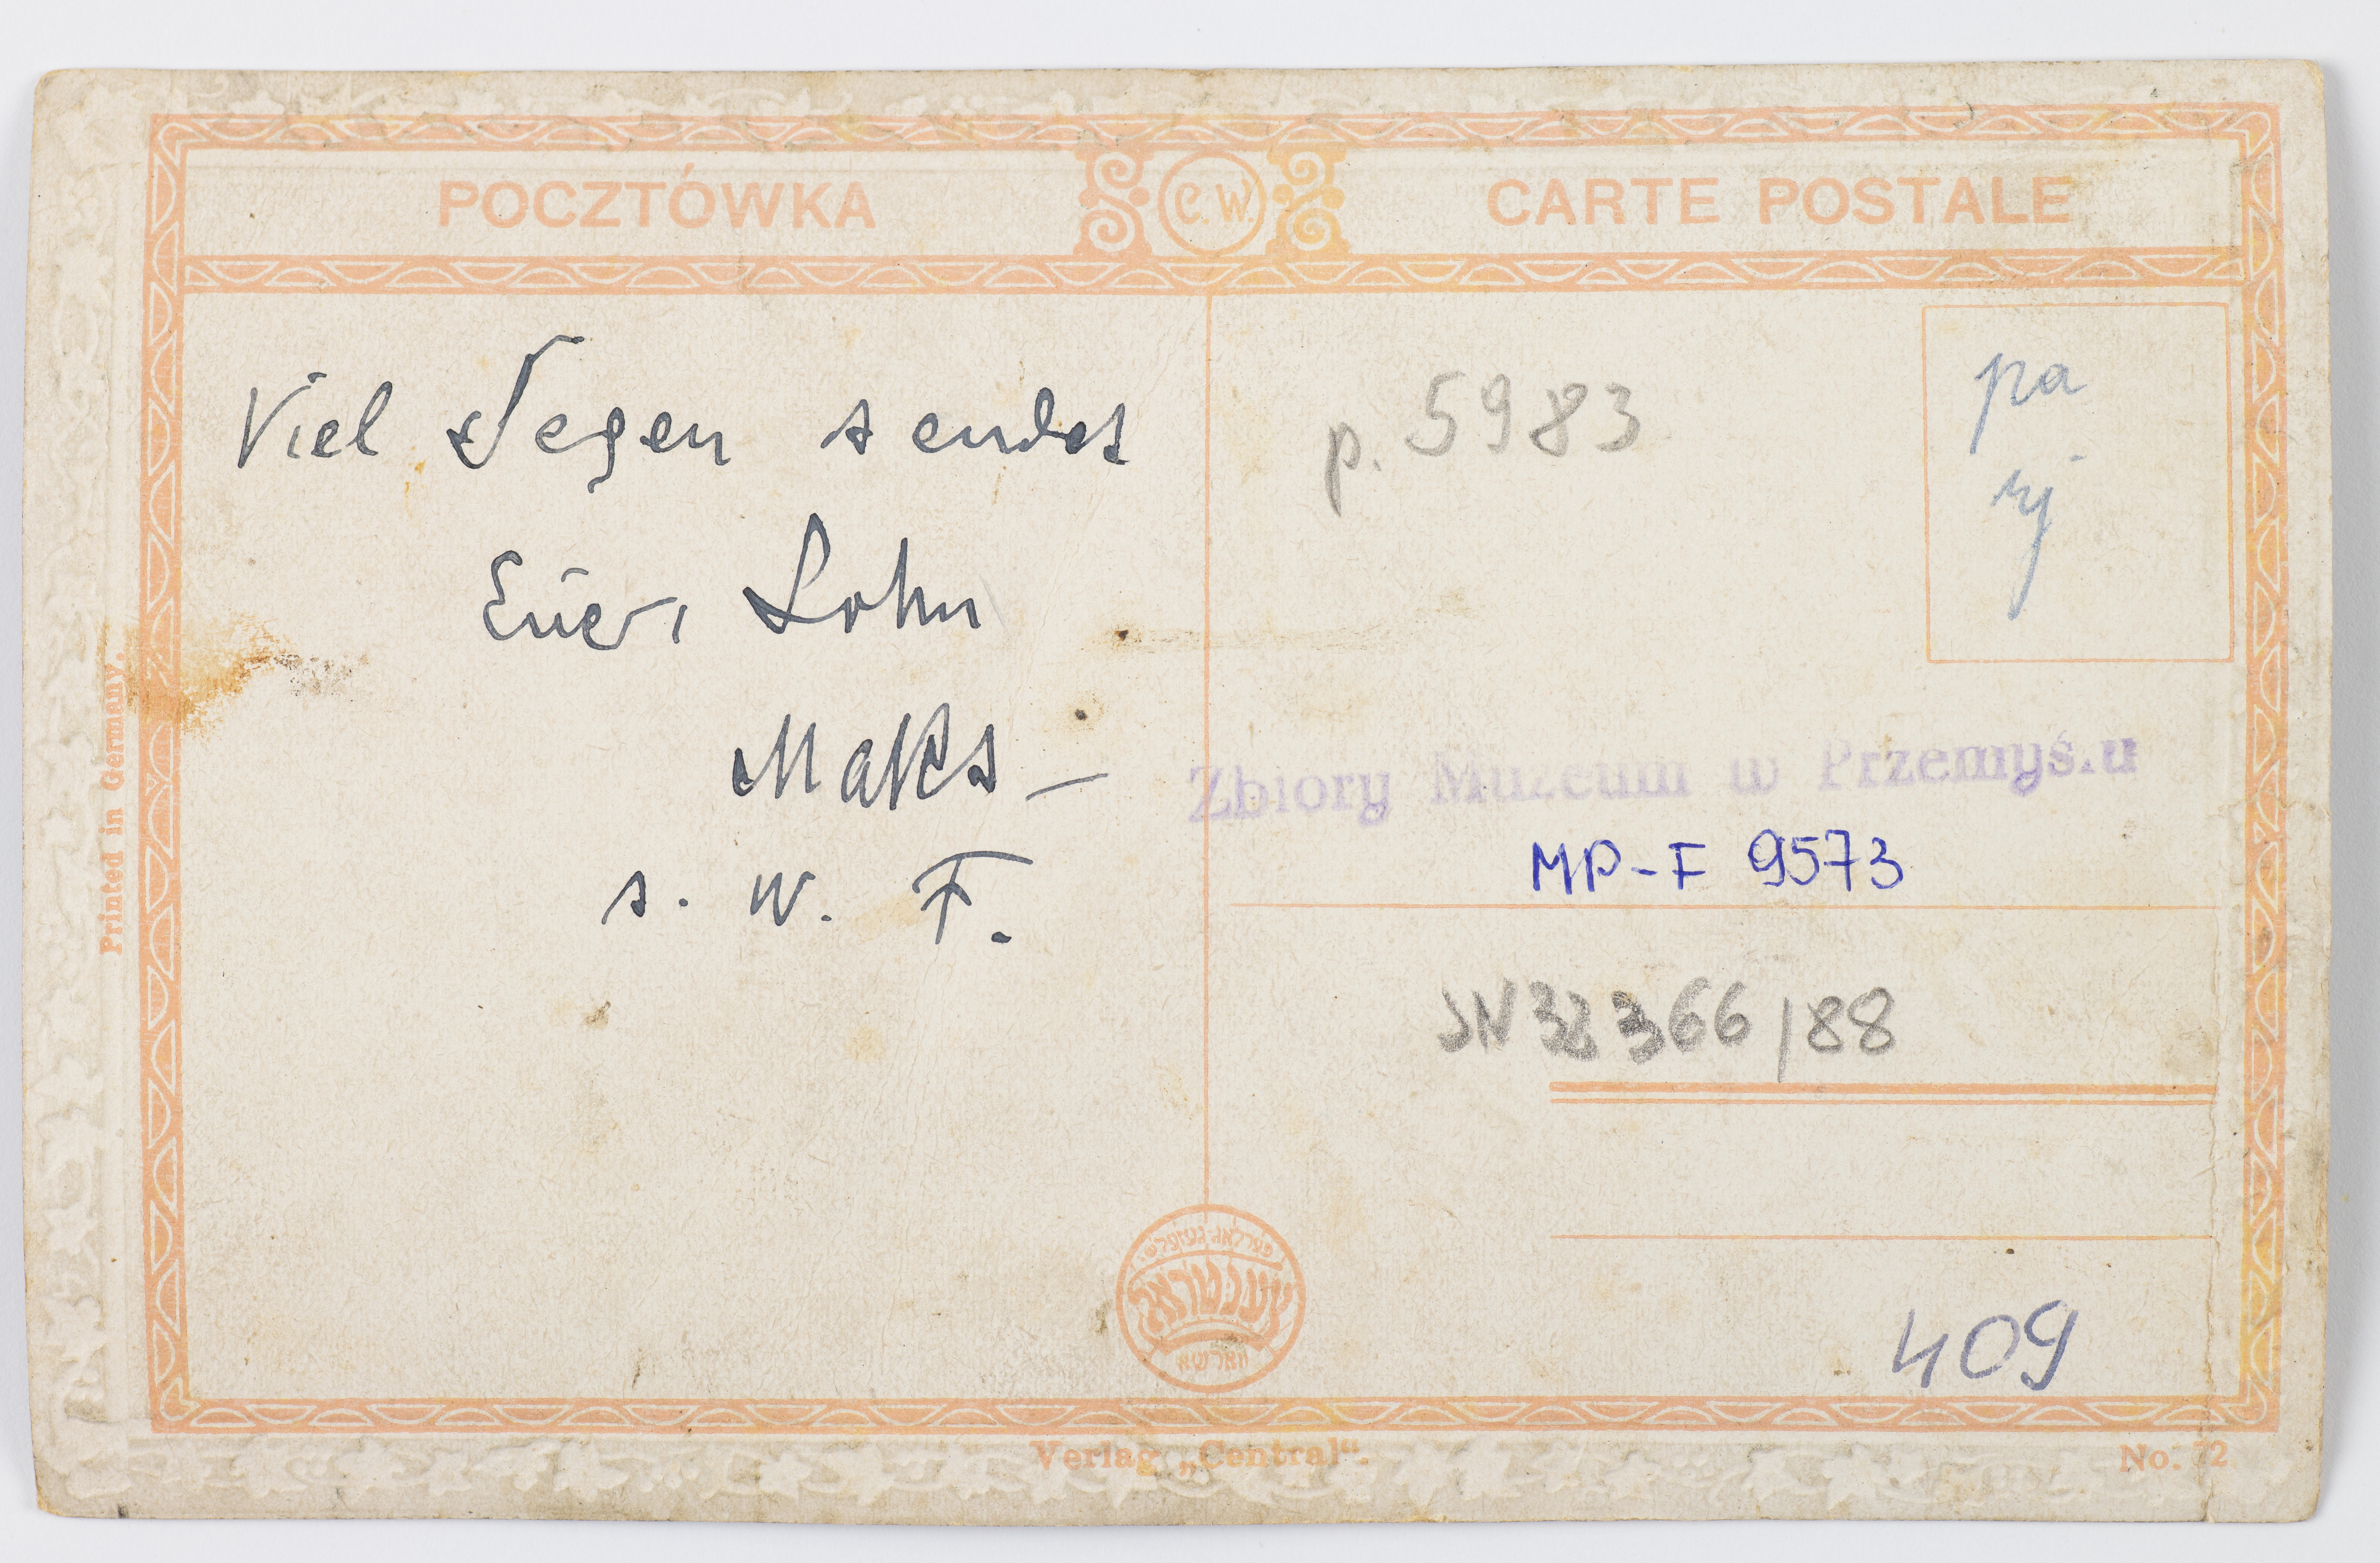 POCZTÓWKA
C.W.
CARTE POSTALE
Viel Segen sendet
Euer, Sohn
Maks —
s. w. F.
p. 5983
pa
rj
Zbiory Muzeum w Przemyślu
MP-F 9573
JN 32366/88
409
Printed in Germany.
פערלאג-געזעלש׳
צענטראל
ווארשא
Verlag „Central“.
No. 72